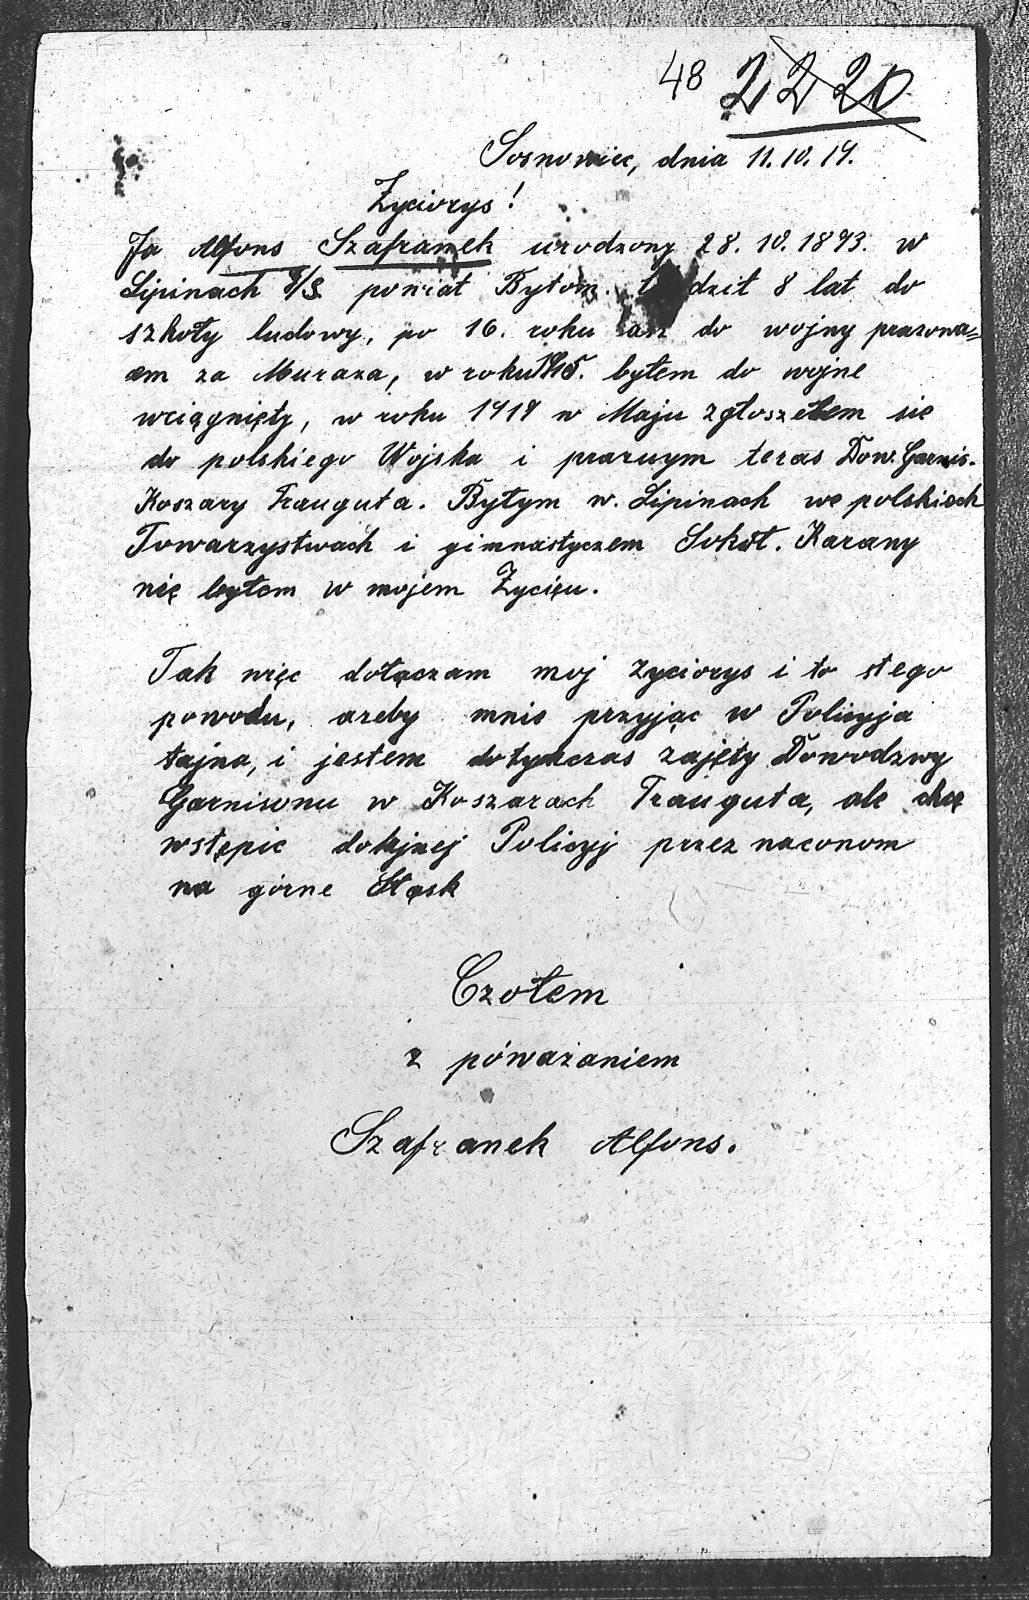 48 2220
Sosnowiec, dnia 11.10.19.
Życiorys!
Ja Alfons Szafranek urodzony 28.10.1893. w
Lipinach O/S. powiat Bytom. dził 8 lat do
szkoły ludowy, po 16. roku do wojny prazona=
em za Muraza, w roku 1915. byłem do wojne
wciągnięty, w roku 1919 w Maju zgłoszełem się
do polskiego Wojska i praruym teras Dow. Garnis.
Koszary Trauguta. Byłym w. Lipinach we polskiech
Towarzystwach i gimnastyczem Sokół. Karany
nie byłem w mojem Życiu.
Tak więc dołączam moj życiorys i to stego
powodu, azeby mnie przyjąc w Policyja
tajna, i jestem dotychczas zajęty Dowodzwy
Garnisonu w Koszarach Trauguta, ale chcę
wstępic Policyj przez naconom
na górne Słąsk
Czołem
z póważaniem
Szafranek Alfons.